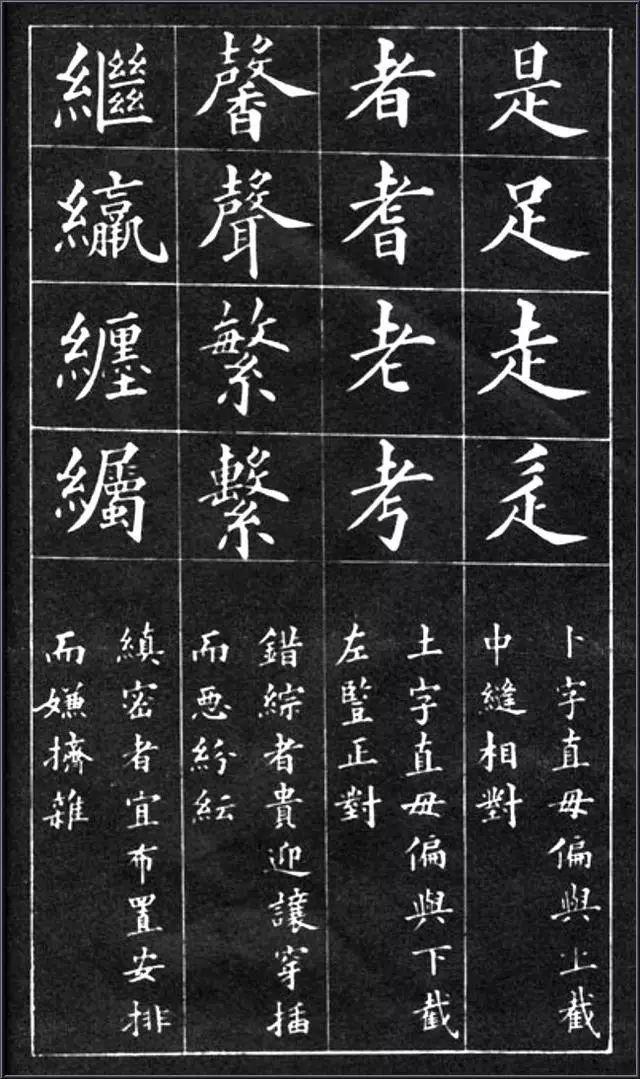 是足走辵
卜字直毋偏與上截
中縫相對
者耆老考
土字直毋偏與下截
左豎正對
馨聲繁繫
錯綜者貴迎讓穿插
而悪紛紜
繼纒
縝密者宜布置安排
而嫌擠雜